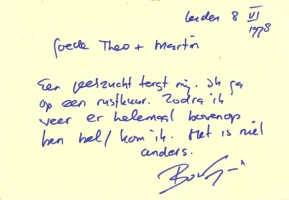 Leiden 8 VI 1978
Goede Theo + Martin
Een geelzucht tergt mij. Ik ga
op een rustkuur. Zodra ik
weer er helemaal bovenop
ben bel / kom ik. Het is niet
anders.